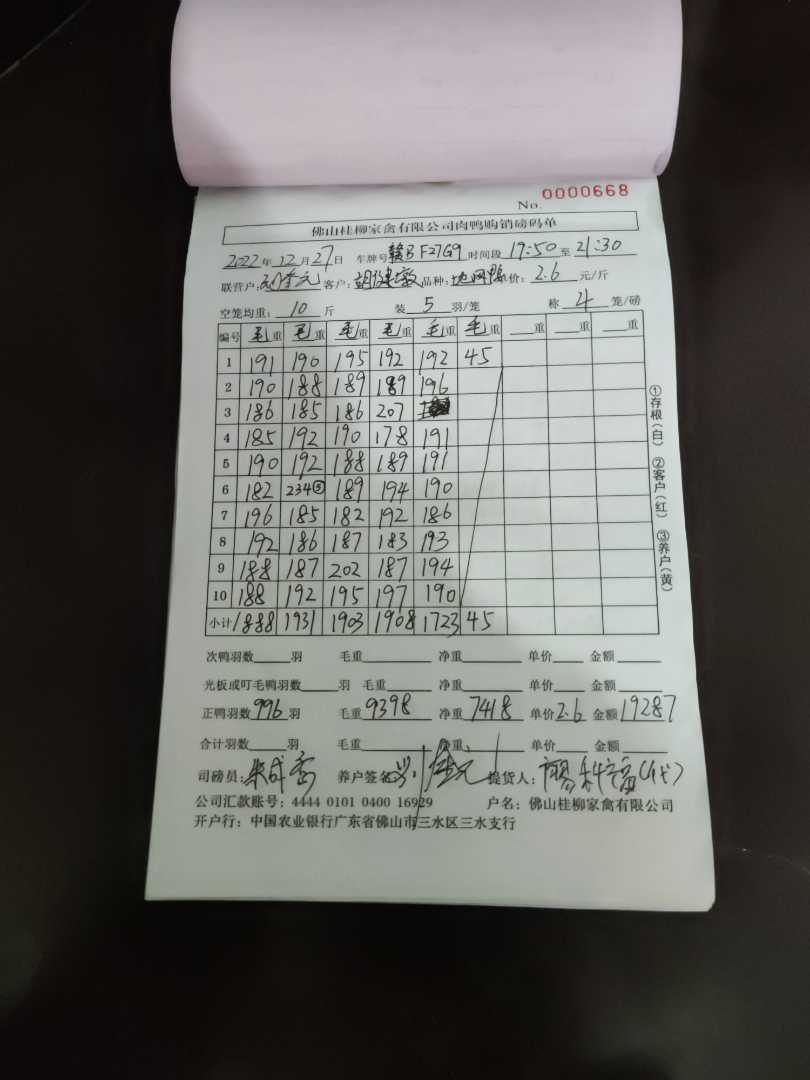 No. 0000668
佛山桂柳家禽有限公司肉鸭购销磅码单
2022年12月27日 车牌号赣B F27G9 时间段17:50至21:30
联营户: 客户:胡建敏 品种: 单价:2.6元/斤
空笼均重:10斤 装5羽/笼 称4笼/磅
编号 毛重 毛重 毛重 毛重 毛重 毛重 重 重 重
1 191 190 195 192 192 45
2 190 188 189 189 196
3 186 185 186 207
4 185 192 190 178 191
5 190 192 188 189 191
6 182 234⑤ 189 194 190
7 196 185 182 192 186
8 192 186 187 183 193
9 188 187 202 187 194
10 188 192 195 197 190
小计 1888 1931 1903 1908 1723 45
次鸭羽数 羽 毛重 净重 单价 金额
光板或叮毛鸭羽数 羽 毛重 净重 单价 金额
正鸭羽数996羽 毛重9398 净重7418 单价2.6 金额19287
合计羽数 羽 毛重 净重 单价 金额
司磅员: 养户签名: 提货人:
公司汇款账号:4444 0101 0400 16929 户名:佛山桂柳家禽有限公司
开户行:中国农业银行广东省佛山市三水区三水支行
①存根(白) ②客户(红) ③养户(黄)